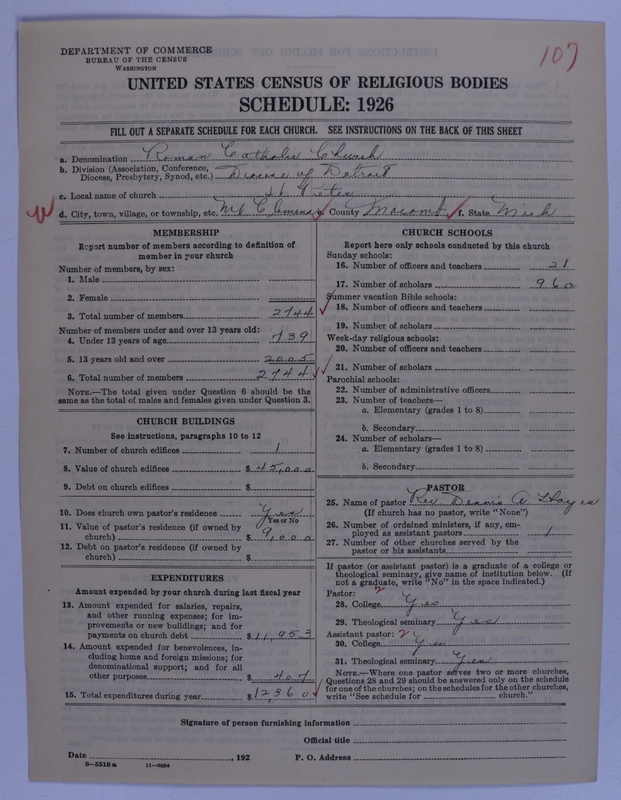 DEPARTMENT OF COMMERCE
BUREAU OF THE CENSUS
WASHINGTON
107
UNITED STATES CENSUS OF RELIGIOUS BODIES
SCHEDULE: 1926
FILL OUT A SEPARATE SCHEDULE FOR EACH CHURCH. SEE INSTRUCTIONS ON THE BACK OF THIS SHEET
a. Denomination Roman Catholic Church
b. Division (Association, Conference, Diocese, Presbytery, Synod, etc.) Diocese of Detroit
c. Local name of church St Peter
d. City, town, village, or township, etc. Mt Clemens e. County Macomb f. State Mich
MEMBERSHIP
Report number of members according to definition of
member in your church
Number of members, by sex:
1. Male
2. Female
3. Total number of members 2744
Number of members under and over 13 years old:
4. Under 13 years of age 739
5. 13 years old and over 2005
6. Total number of members 2744
NOTE.—The total given under Question 6 should be the
same as the total of males and females given under Question 3.
CHURCH BUILDINGS
See instructions, paragraphs 10 to 12
7. Number of church edifices 1
8. Value of church edifices $45,000
9. Debt on church edifices $
10. Does church own pastor's residence Yes
Yes or No
11. Value of pastor's residence (if owned by
church) $9,000
12. Debt on pastor's residence (if owned by
church) $
EXPENDITURES
Amount expended by your church during last fiscal year
13. Amount expended for salaries, repairs,
and other running expenses; for im-
provements or new buildings; and for
payments on church debt $11,953
14. Amount expended for benevolences, in-
cluding home and foreign missions; for
denominational support; and for all
other purposes $407
15. Total expenditures during year $12,360
CHURCH SCHOOLS
Report here only schools conducted by this church
Sunday schools:
16. Number of officers and teachers 21
17. Number of scholars 960
Summer vacation Bible schools:
18. Number of officers and teachers
19. Number of scholars
Week-day religious schools:
20. Number of officers and teachers
21. Number of scholars
Parochial schools:
22. Number of administrative officers
23. Number of teachers—
a. Elementary (grades 1 to 8)
b. Secondary
24. Number of scholars—
a. Elementary (grades 1 to 8)
b. Secondary
PASTOR
25. Name of pastor Rev. Dennis A. Hayes
(If church has no pastor, write "None")
26. Number of ordained ministers, if any, em-
ployed as assistant pastors 1
27. Number of other churches served by the
pastor or his assistants
If pastor (or assistant pastor) is a graduate of a college or
theological seminary, give name of institution below. (If
not a graduate, write "No" in the space indicated.)
Pastor: 2
28. College Yes
29. Theological seminary Yes
Assistant pastor: 2
30. College Yes
31. Theological seminary Yes
NOTE.—Where one pastor serves two or more churches,
Questions 28 and 29 should be answered only on the schedule
for one of the churches; on the schedules for the other churches,
write "See schedule for church."
Signature of person furnishing information
Official title
Date , 192 P. O. Address
9—5518 a 11—9034